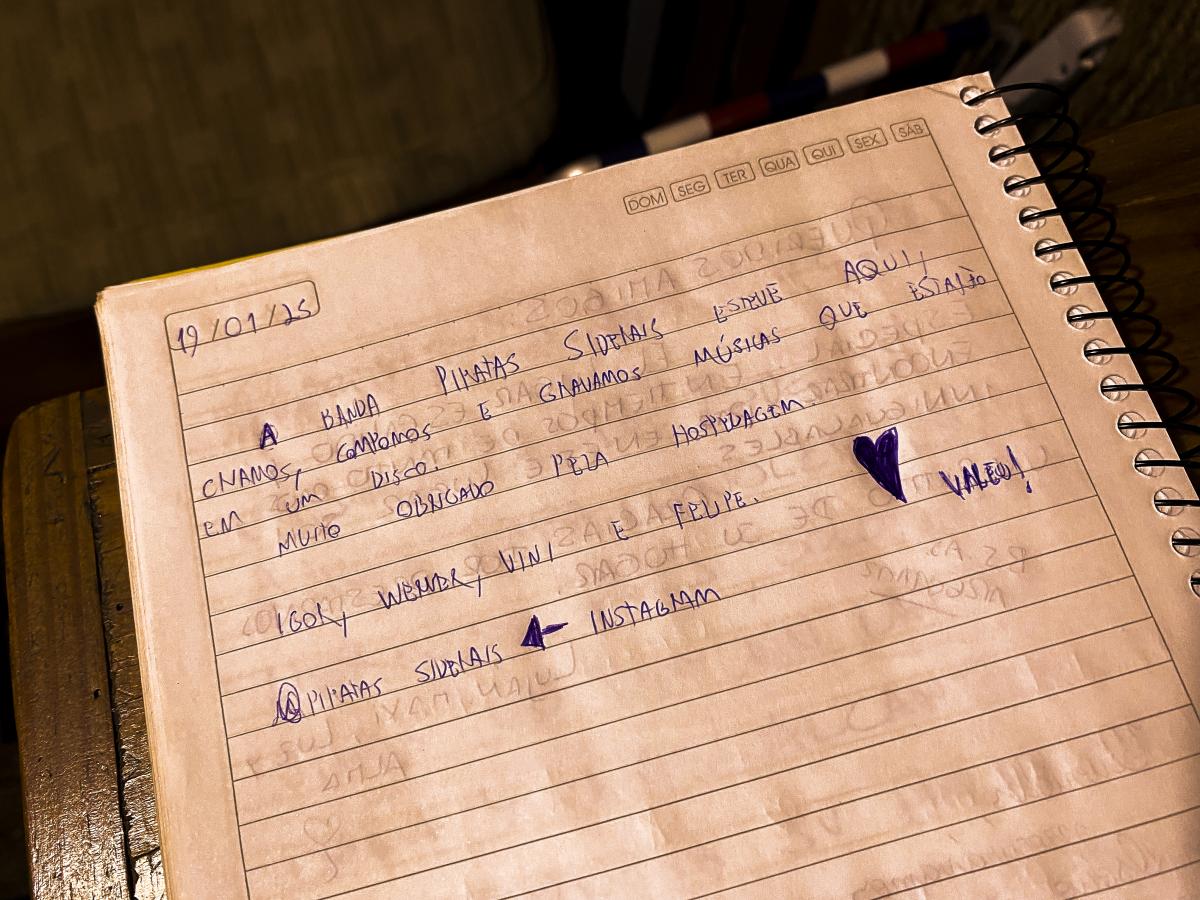 DOM SEG TER QUA QUI SEX SÁB
19/01/25
A BANDA PIRATAS SIDERAIS ESTEVE AQUI,
CRIAMOS, COMPOMOS E GRAVAMOS MÚSICAS QUE ESTARÃO
EM UM DISCO.
MUITO OBRIGADO PELA HOSPEDAGEM.
IGOR, WERNER, VINI E FELIPE. VALEU!
@PIRATAS SIDERAIS ← INSTAGRAM